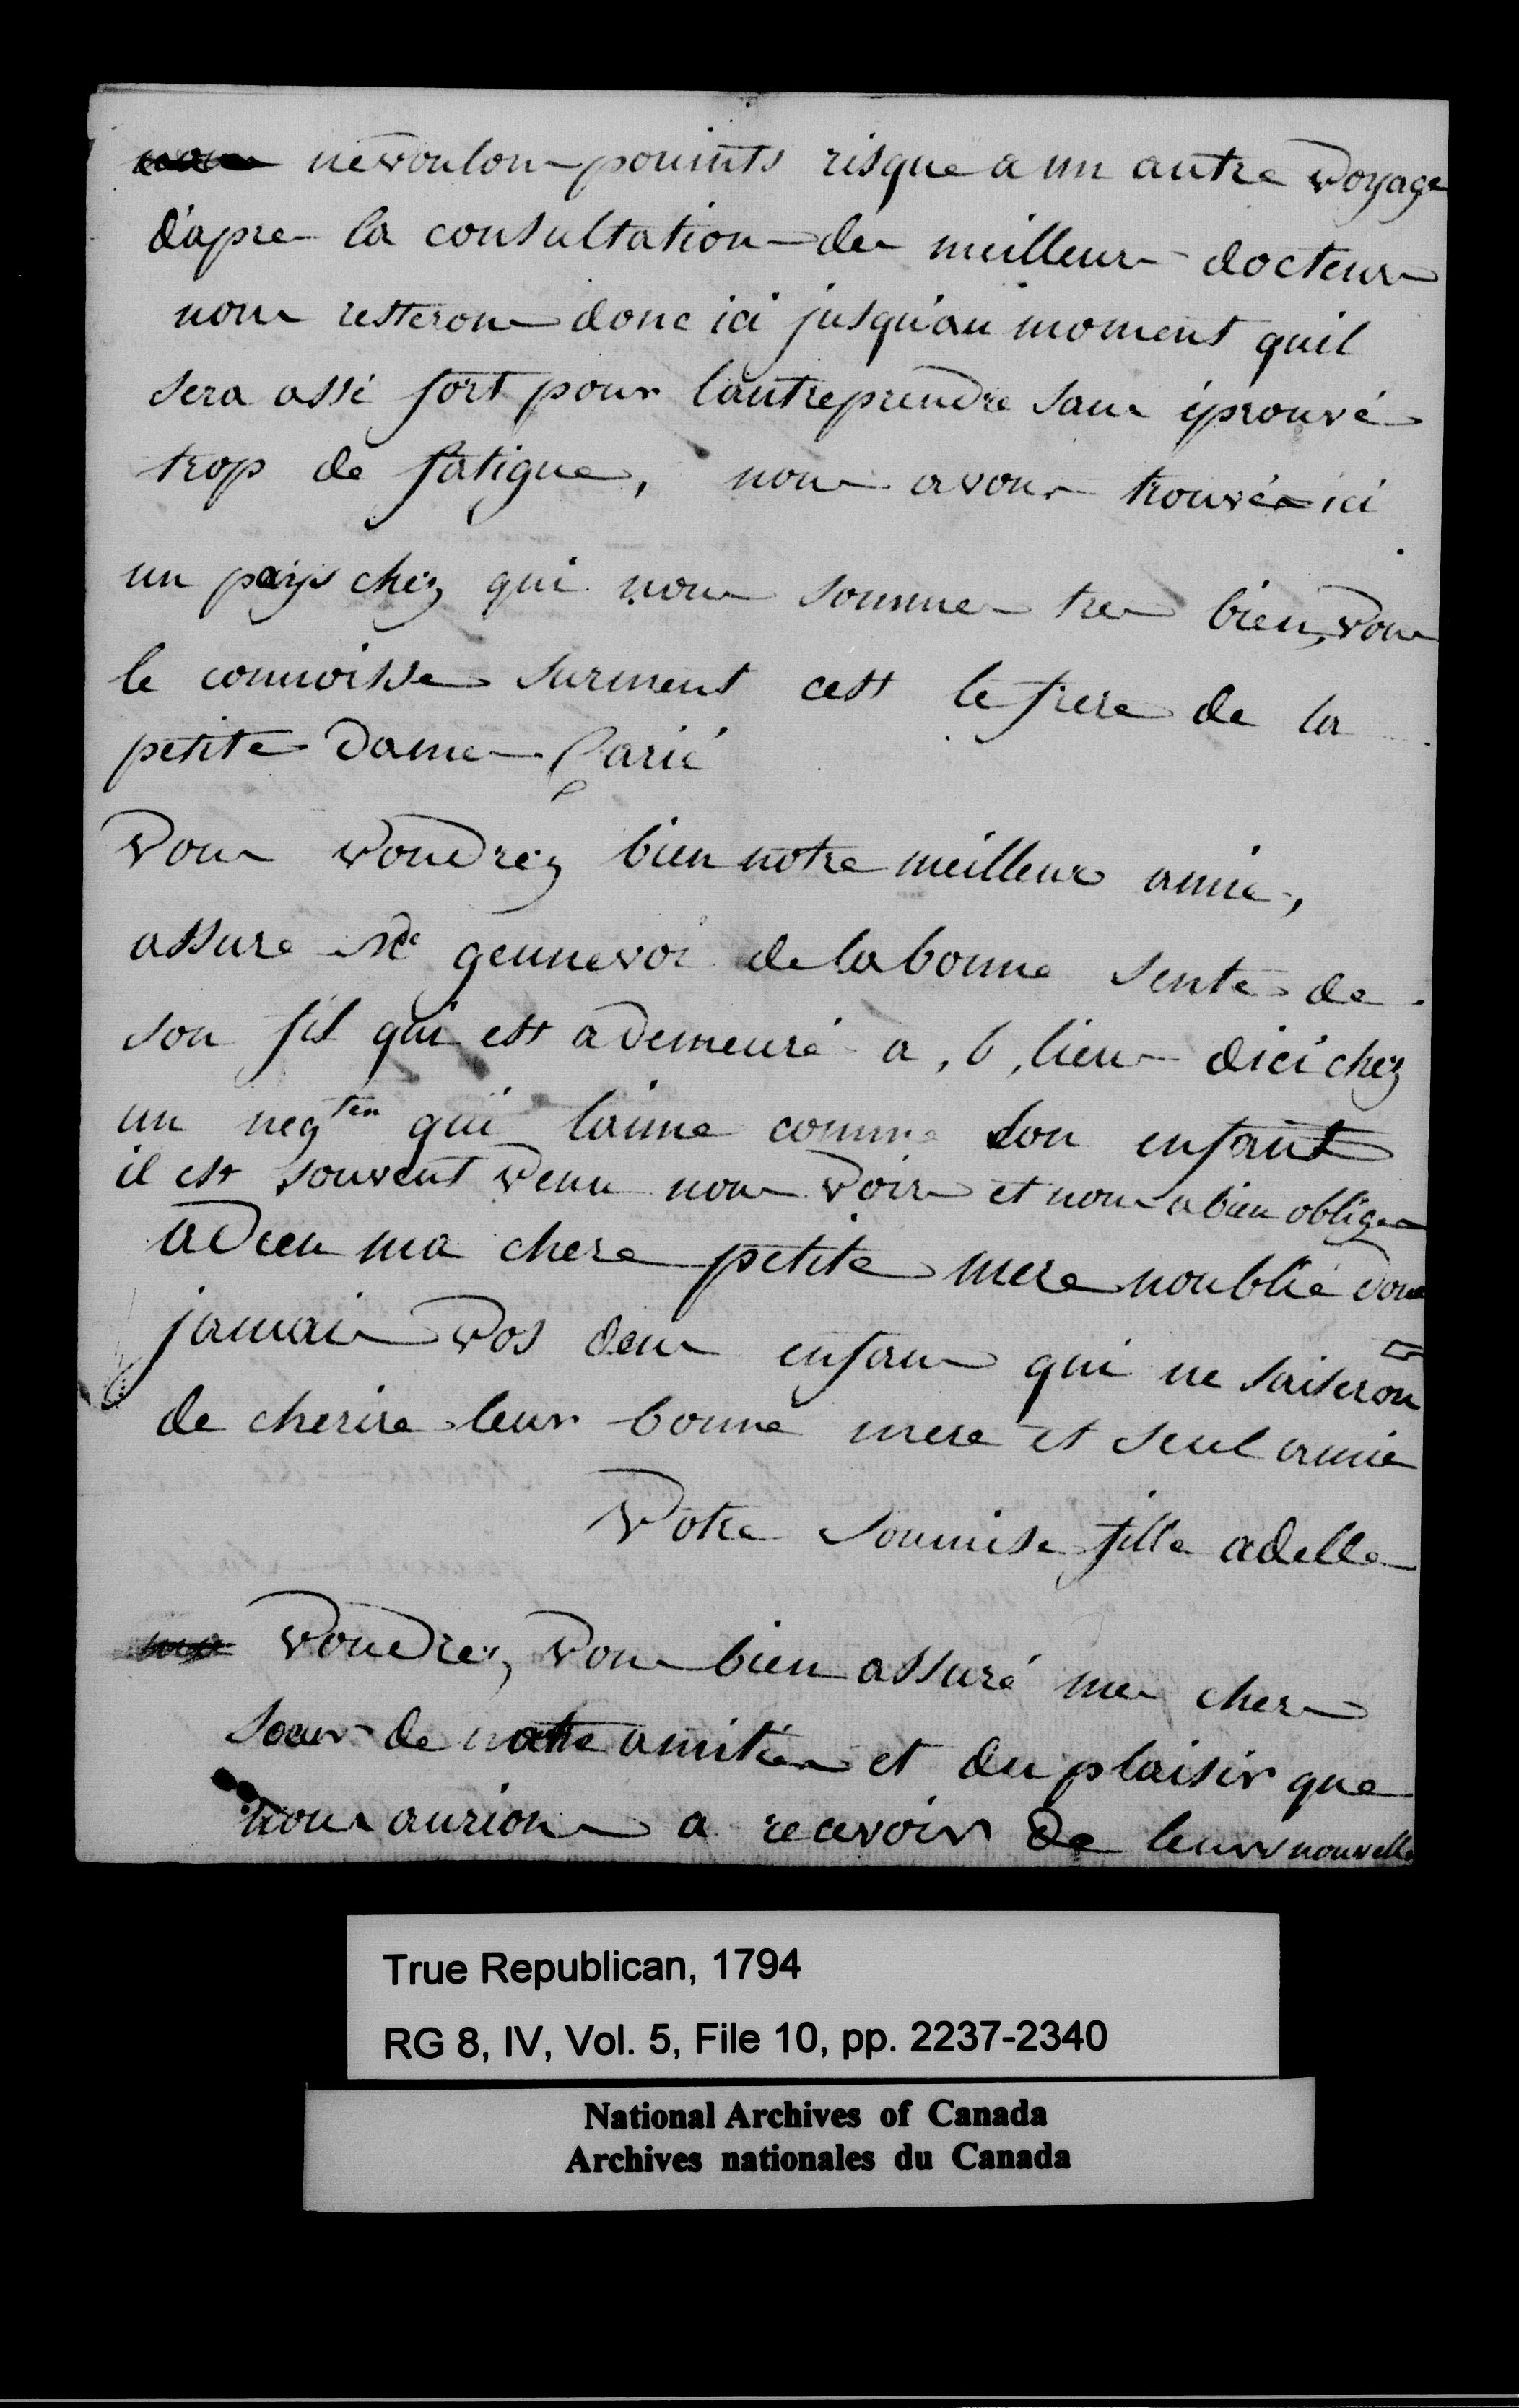 nevoulons pouints risque a un autre voyage
d'apres la consultation des meilleurs docteurs
nous resterons donc ici jusqu'au moment quil
sera assé fort pour lantreprendre sans éprouvé
trop de fatigue, nous avons trouvés ici
un pays chez qui nous sommes tres bien, vous
le connoisse surment cest le frere de la
petite dame Carié
vous voudrez bien notre meilleur amie,
assure Me gennevoi de la bonne sente de
son fil qui est a demeuré a, 6, lieus dici chez
un negten qui laime comme son enfant
il est souvent venu nous voir et nous a bien obliges
adieu ma chere petite mere noublié vous
jamais vos deus enfans qui ne saiseron
de cherire leur bonne mere et seul amie
votre soumise fille adelle
voudrez vous bien assuré mes chers
soeurs de notre amitiés et du plaisir que
nous aurions a recevoir de leurs nouvelle
True Republican, 1794
RG 8, IV, Vol. 5, File 10, pp. 2237-2340
National Archives of Canada
Archives nationales du Canada